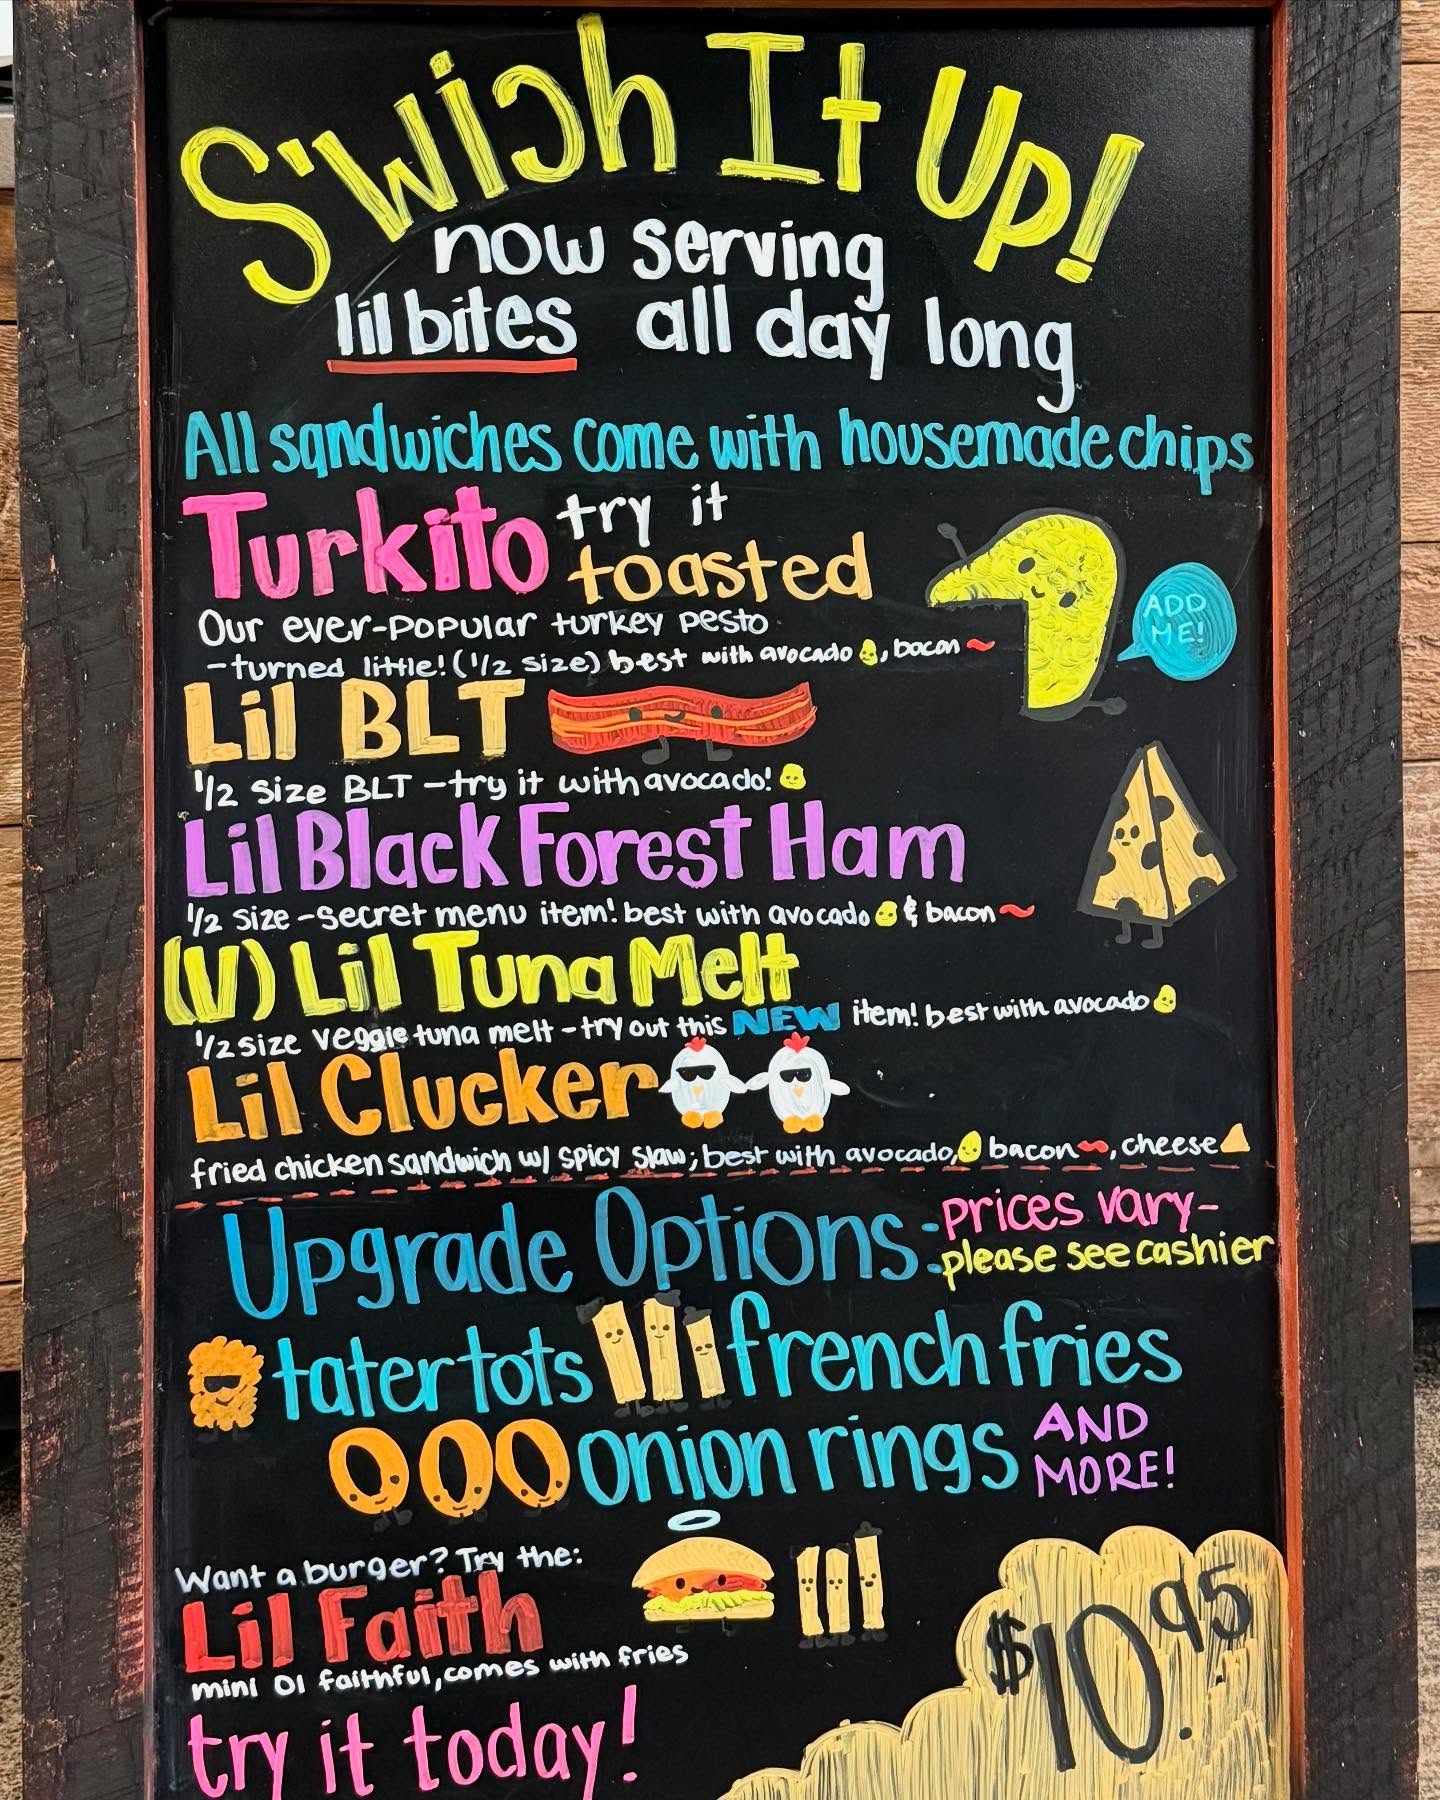 S'wich It Up!
now serving
lil bites all day long
All sandwiches come with housemade chips
Turkito try it
toasted
Our ever-popular turkey pesto
-turned little! (1/2 size) best with avocado, bacon
ADD
ME!
Lil BLT
1/2 size BLT - try it with avocado!
Lil Black Forest Ham
1/2 size - secret menu item! best with avocado & bacon
(V) Lil Tuna Melt
1/2 size veggie tuna melt - try out this NEW item! best with avocado
Lil Clucker
fried chicken sandwich w/ spicy slaw; best with avocado, bacon, cheese
Upgrade Options - prices vary-
please see cashier
tater tots french fries
onion rings AND
MORE!
Want a burger? Try the:
Lil Faith
mini Ol faithful, comes with fries
try it today!
$10.95